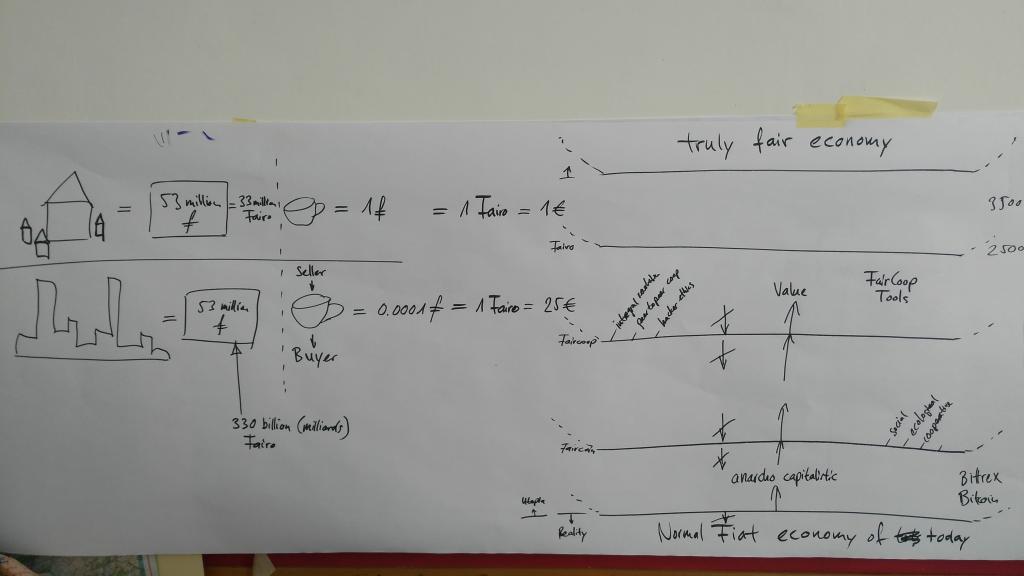 truly fair economy
3500
53 million
ƒ
= 33 million
Fairo
= 1 ƒ = 1 Fairo = 1 €
Fairo
2500
Seller
Buyer
53 million
ƒ
= 0.0001 ƒ = 1 Fairo = 25 €
330 billion (milliards)
Fairo
Value
FairCoop
Tools
Faircoop
integral
peer to peer coop
hacker ethics
Faircoin
social
ecological
cooperative
anarcho capitalistic
Bittrex
Bitcoin
Utopia
Reality
Normal Fiat economy of today